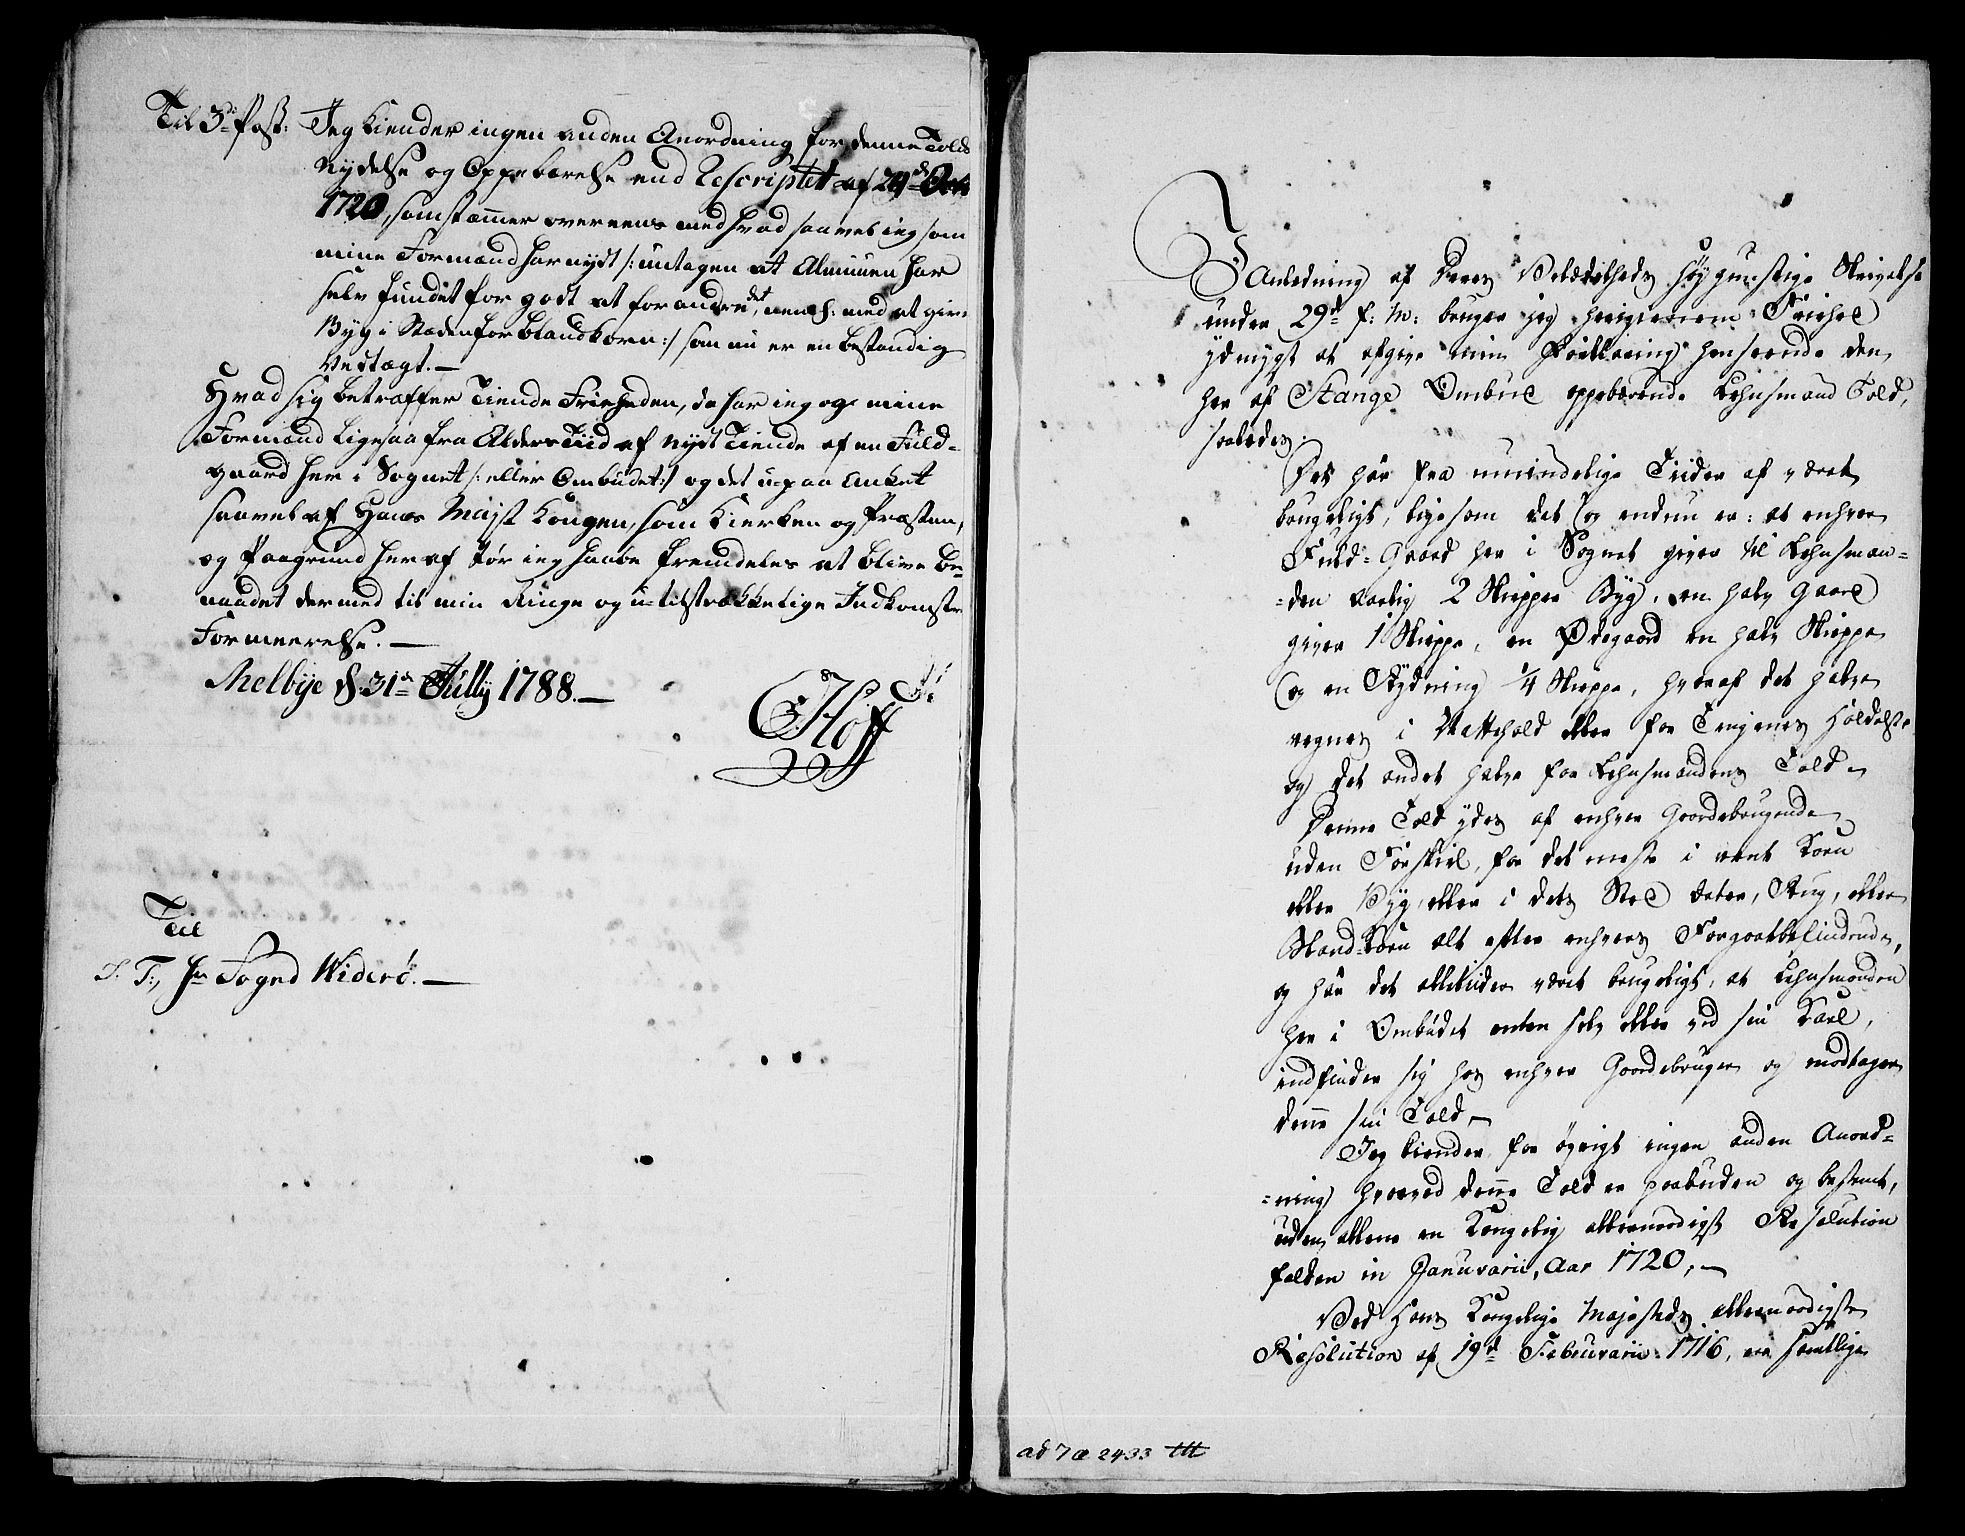 Til 3die Post: Jeg kiender ingen anden Anordning for denne Tolds
Nydelse og Oppebærelse end Rescriptet af 29de Octr
1720, som stæmmer overeens med hvad saavel ieg som
mine Formænd har nydt /: undtagen at Almuen har
selv fundet for godt at forandre det, nemlig: med at give
Byg i Stæden for blandkorn :/ som nu er en bestandig
Vedtægt. —
Hvad sig betræffer Tiende Friheden, da har ieg og mine
Formænd ligesaa fra Alders Tiid af nydt Tiende af en Fuld-
gaard her i Sognet /: eller Ombudet :/ og det upaa anket
saavel af Hans Mayst Kongen, som Kierken og Præsten,
og Paagrund her af tør ieg haabe fremdeles at blive be-
naadet dermed til min Ringe og u-tilstrækkelige Indkomsts
Formeerelse. —
Melbye d: 31te Jully 1788. —
Hoff
Til
S. T., Hr Foged Widerö. —
I Anledning af Deres Velædelheds høygunstige Skrivelse
under 29de f: M: tager jeg herigiennem Friehed
ydmygst at afgive min Forklaring henseende den
her af Stange Ombud oppebærende Lehnsmand Told,
saaledes:
Det har fra umindelige Tiider af været
brugeligt, ligesom det og endnu er: at enhver
Fuld-Gaard her i Sognet giver til Lehnsman-
-den aarlig 2 Skiepper Byg, en halv Gaard
giver 1 Skieppe, en Ødegaard en halv Skieppe
og en Rydning 1/4 Skieppe, hvoraf det halve
regnes i Nattehold eller for Fangenes Holdelse
og det andet halve for Lehnsmandens Told.
Denne Told ydes af enhver Gaardebrugende
uden Forskiel, for det meste i reent Korn
eller Byg, eller i dets Sted Havre, Rug, eller
Bland-Korn alt efter enhvers Forgodtbefindende,
og har det alletider været brugeligt, at Lehnsmanden
her i Ombudet enten selv eller ved sin Karl,
indfinder sig hos enhver Gaardebruger og modtager
denne sin Told.
Jeg kiender for øvrigt ingen anden Anord-
-ning hvorved denne Told er paabuden og bestemt,
uden allene en Kongelig allernaadigst Resolution
falden in Januvarii, Aar 1720, —
Ved Hans Kongelige Majestæts allernaadigste
Resolution af 19de Februvarii 1716, er samtlige
ad 2433